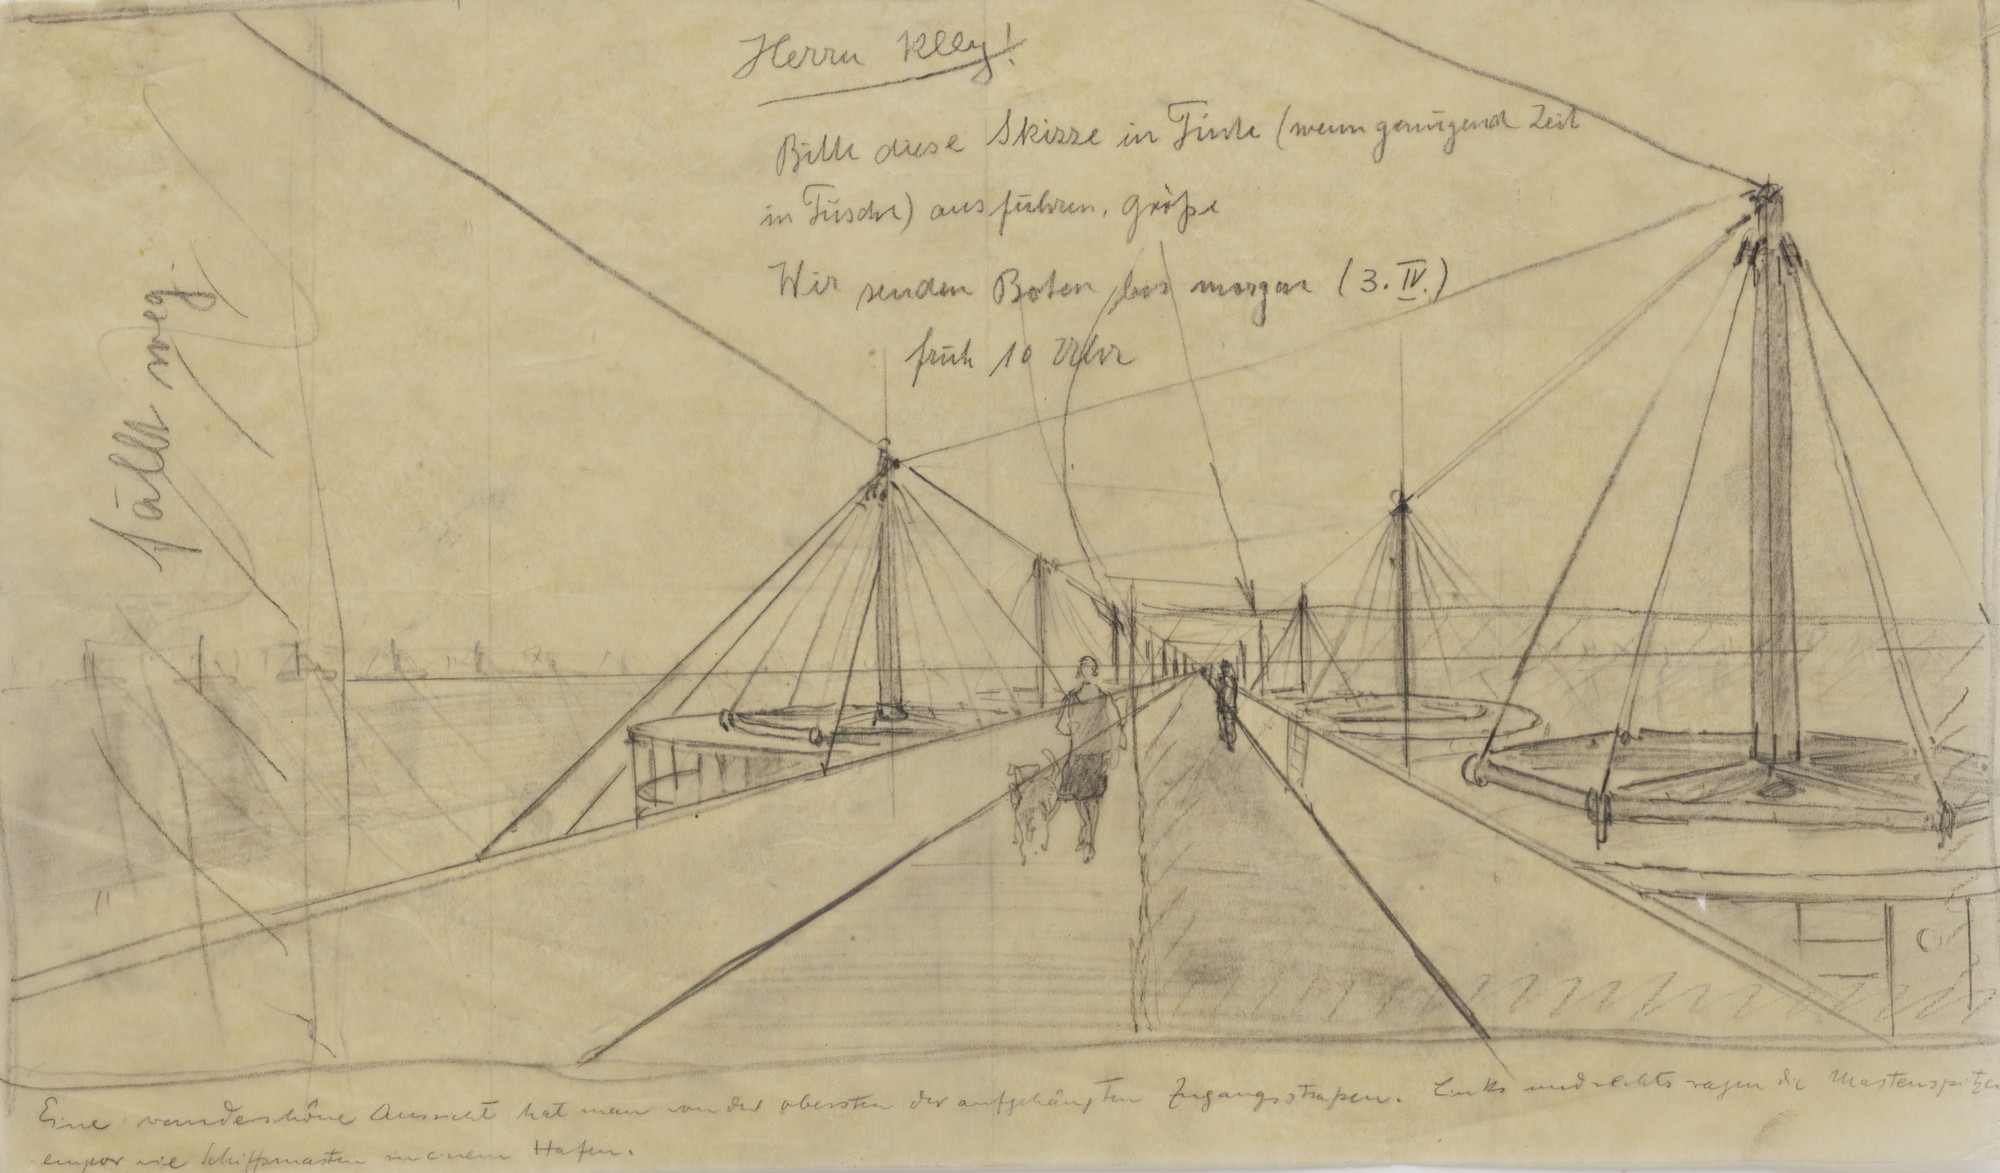 Herrn Kley!
Bitte diese Skizze in Tinte (wenn genügend Zeit
in Tusche) ausführen, größe
Wir senden Boten bis morgen (3. IV.)
früh 10 Uhr
fällt weg.
Eine wunderschöne Aussicht hat man von der obersten der aufgehängten Zugangsstraßen. Links und rechts ragen die Mastenspitzen
empor wie Schiffsmasten in einem Hafen.